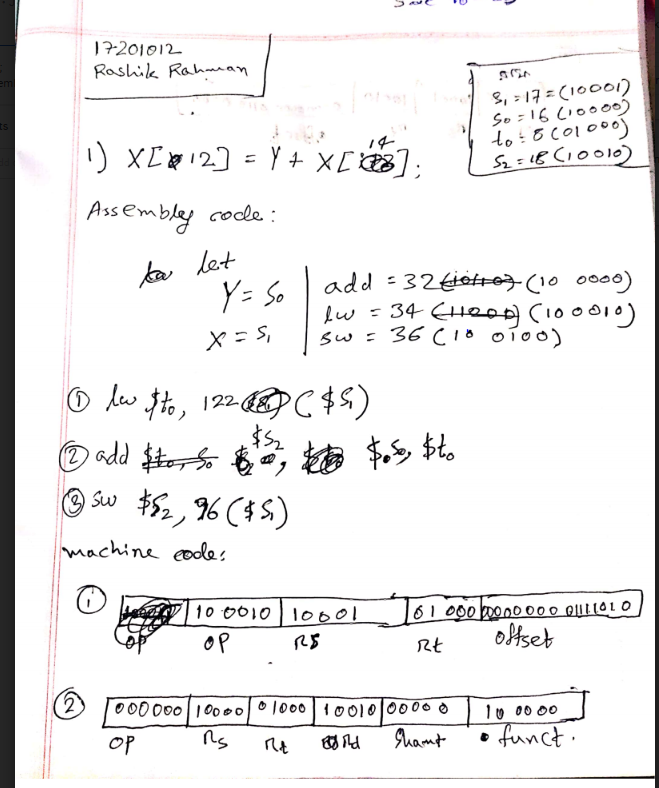 17201012
Rashik Rahman
S₁ = 17 = (10001)
S₀ = 16 (10000)
t₀ = 8 (01000)
S₂ = 18 (10010)
1) X[12] = Y + X[14];
Assembly code:
let
Y = S₀
X = S₁
add = 32 (10 0000)
lw = 34 (100010)
sw = 36 (10 0100)
① lw $t₀, 122 ($S₁)
② add $S₂, $S₀, $t₀
③ sw $S₂, 96 ($S₁)
machine code:
① 10 0010 | 10001 | 01000 | 00000000 01111010
OP OP RS Rt offset
② 000000 | 10000 | 01000 | 10010 | 00000 | 10 0000
OP Rs Rt Rd Shamt funct.